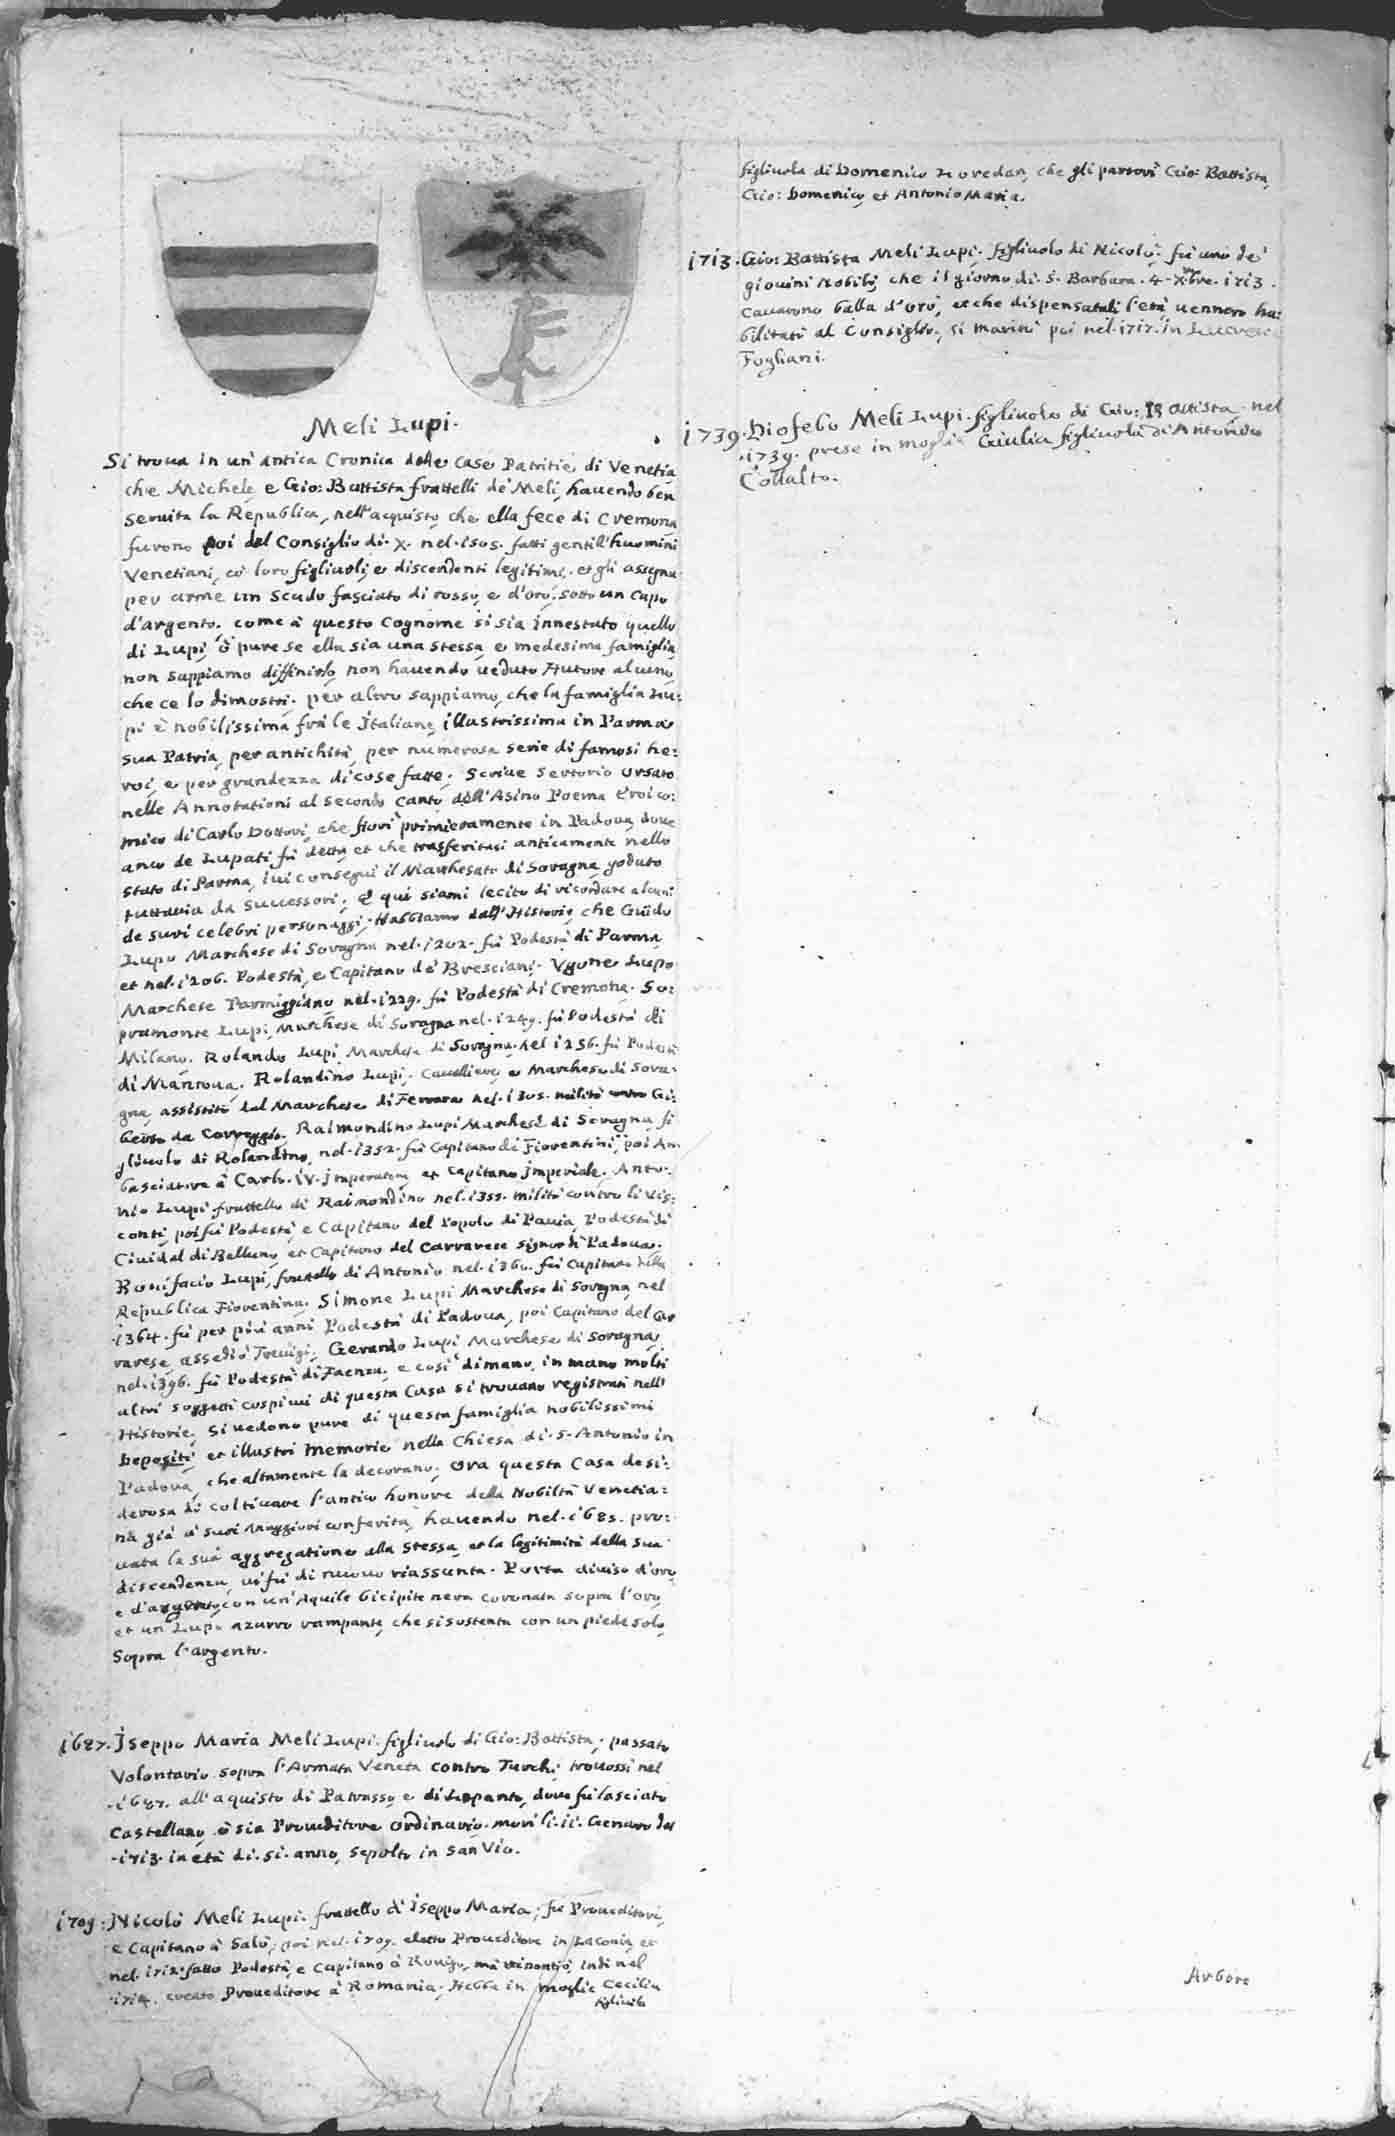 Meli Lupi.
Si troua in un' antica Cronica delle Case Patritie di Venetia
che Michele, e Gio: Battista frattelli de' Meli, hauendo ben
seruita la Republica, nell'acquisto, che ella fece di Cremona
furono poi dal Consiglio di. X. nel. 1505. fatti gentil'huomini
Venetiani, co' loro figliuoli, e discendenti legitimi. et gli assegnò
per arme un Scudo fasciato di rosso, e d'oro, sotto un Capo
d'argento. come à questo Cognome si sia innestato quello
di Lupi, ò pure se ella sia una stessa, e medesima famiglia,
non sappiamo diffinirlo, non hauendo ueduto Autore alcuno,
che ce lo dimostri. per altro sappiamo, che la famiglia Lu:
pi è nobilissima frà le Italiane, illustrissima in Parma
sua Patria, per antichità, per numerosa serie di famosi he:
roi, e per grandezza di cose fatte. Scriue Sertorio Orsato
nelle Annotationi al secondo Canto dell'Asino Poema Eroico:
mico di Carlo Dottori, che fiorì primieramente in Padoua, doue
anco de Lupati fù detta, et che trasferitasi anticamente nello
stato di Parma, iui conseguì il Marchesato di Soragna, goduto
tuttauia da successori. E qui siami lecito di ricordare alcuni
de suoi celebri personaggi. Habbiamo dall'Historie, che Guido
Lupo Marchese di Soragna nel. 1202. fù Podestà di Parma,
et nel. 1206. Podestà, e Capitano de' Bresciani. Vgone Lupo
Marchese Parmiggiano nel. 1229. fù Podestà di Cremona. So:
pramonte Lupi, Marchese di Soragna nel. 1249. fù Podestà di
Milano. Rolando Lupi Marchese di Soragna. nel 1256. fù Podestà
di Mantoua. Rolandino Lupi. Caualliere, e Marchese di Sora:
gna, assistito dal Marchese di Ferrara nel. 1305. militò contro Gi:
berto da Correggio. Raimondino Lupi Marchese di Soragna, fi
gliuolo di Rolandino, nel. 1352. fù Capitano de' Fiorentini, poi Am:
basciatore à Carlo. IV. Imperatore, et Capitano Imperiale. Anto:
nio Lupi frattello di Raimondino nel. 1355. militò contro li Vis:
conti, poi fù Podestà, e Capitano del Popolo di Pauia, Podestà di
Ciuidal di Belluno, et Capitano del Carrarese Signor di Padoua.
Bonifacio Lupi, frattello di Antonio nel. 1360. fù Capitano della
Republica Fiorentina. Simone Lupi Marchese di Soragna, nel
.1364. fù per più anni Podestà di Padoua, poi Capitano del Car
rarese, assediò Treuigi. Gerardo Lupi Marchese di Soragna,
nel. 1396. fù Podestà di Faenza. e così di mano, in mano molti
altri soggetti cospicui di questa Casa si trouano registrati nell'
Historie. Si uedono pure di questa famiglia nobilissimi
Depositi, et illustri memorie nella Chiesa di. S. Antonio in
Padoua, che altamente la decorano. Ora questa Casa desi:
derosa di coltiuare l'antico honore della Nobiltà Venetia:
na già à suoi Maggiori conferita, hauendo nel. 1685. pro:
uata la sua aggregatione alla stessa, et la legitimità della sua
discendenza, ui fù di nuouo riassunta. Porta diuiso d'oro,
e d'argento, con un'Aquila bicipite nera coronata sopra l'oro,
et un Lupo azurro rampante, che si sostenta con un piede solo,
sopra l'argento.
1687. Iseppo Maria Meli Lupi. figliuolo di Gio: Battista, passato
Volontario sopra l'Armata Veneta contro Turchi, trouossi nel
.1687. all'aquisto di Patrasso, e di Lepanto, doue fù lasciato
Castellano, ò sia Proueditore Ordinario. morì li. 11. Genaro del
.1713. in età di. 51. anno, sepolto in San Vio.
1709. Nicolò Meli Lupi. frattello d'Iseppo Maria; fù Proueditore,
e Capitano à Salò, poi nel. 1709. eletto Proueditore in Laconia, et
nel. 1712. fatto Podestà, e Capitano à Rouigo, mà rinontiò, indi nel
.1714. creato Proueditore à Romania. Hebbe in moglie Cecilia
figliuola
figliuola di Domenico Loredan, che gli partorì Gio: Battista,
Gio: Domenico, et Antonio Maria.
1713. Gio: Battista Meli Lupi. figliuolo di Nicolò; fù uno de'
giouini Nobili, che il giorno di. S. Barbara. 4. Xmbre. 1713.
cauarono balla d'oro, et che dispensatali l'età uennero ha:
bilitati al Consiglio, si maritò poi nel. 1717. in Lucrezia
Fogliani.
1739. Diofebo Meli Lupi. figliuolo di Gio: Battista. nel
.1739. prese in moglie Giulia figliuola di Antonio
Collalto.
Arbore